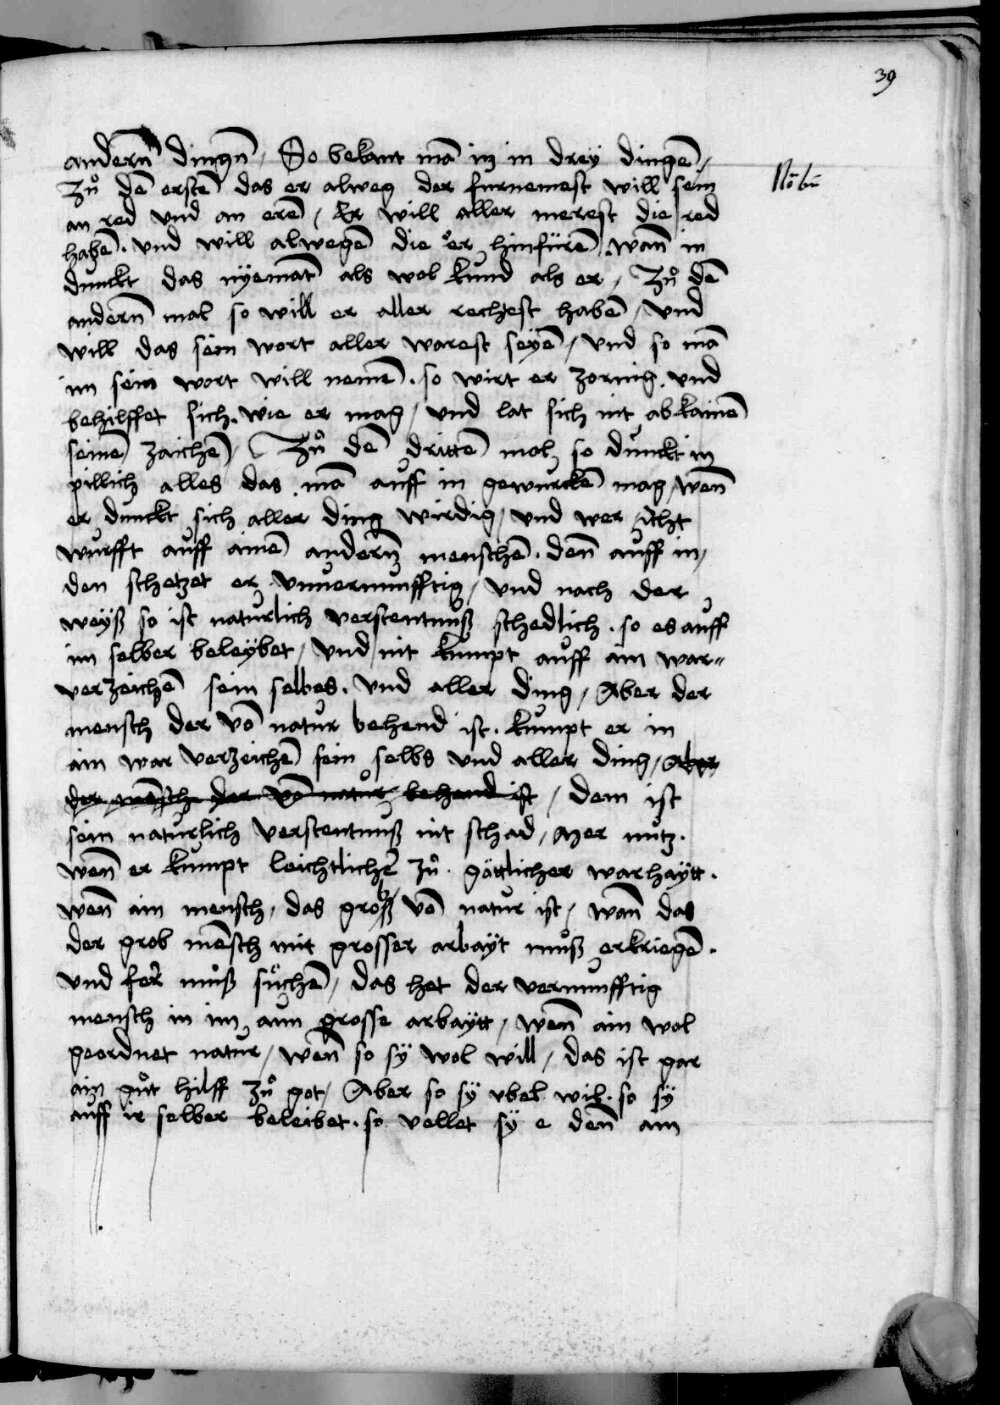 39
andern̄ dingn̄ / So bekant mā in in drey dingē /
Zů dē erstē das er alweg der furnemest will sein
an red vnd an erē / Er will aller merest die red
habē . vnd will alwegē die er hinfürē . wan̄ in
dunckt das nyemāt als wol kund als er / Zů dē
andern̄ mal so will er aller rechtest habē / vnd
will das sein wort aller warest seyē / vnd so mā
im sein wort will nemē . so wirt er zornig . vnd
behilffet sich . wie er mag / vnd lat sich nit ab kainē
seinē zaichē / Zů dē drittē mol so dunckt in
pillich alles das . mā auff in gewurckē mag / wen̄
er dunckt sich aller ding wirdig / vnd wer icht
wurfft auff ainē andern̄ menschē . den̄ auff in /
den schetzet er vnuernunfftig / vnd nach der
weyß so ist naturlich verstentnuß schedlich . so es auff
im selber beleybet / vnd nit kumpt auff ain war=
verzeichē sein selbes . vnd aller ding / Aber der
mensch der vō natur behend ist . kumpt er in
ain war verzeichē sein selbs vnd aller ding / Aber
der mēsch der vō natůr behend ist / dem ist
sein naturlich verstentnuß nit schad / Mer nutz .
wen̄ er kumpt leichtlicher zů göttlicher warhaytt .
wen̄ ain mensch / das grob vō natur ist / wan̄ das
der grob mēsch mit grosser arbayt muß erkriegē .
vnd fer muß sůchē / das het der vernunfftig
mensch in im aun grosse arbaytt / wen̄ ain wol
geordnet natur / wen̄ so sy wol will / das ist gar
ain gůt hilff zů got / Aber so sy vbel wil . so sy
auff ir selber beleibet . so vellet sy e den̄ am